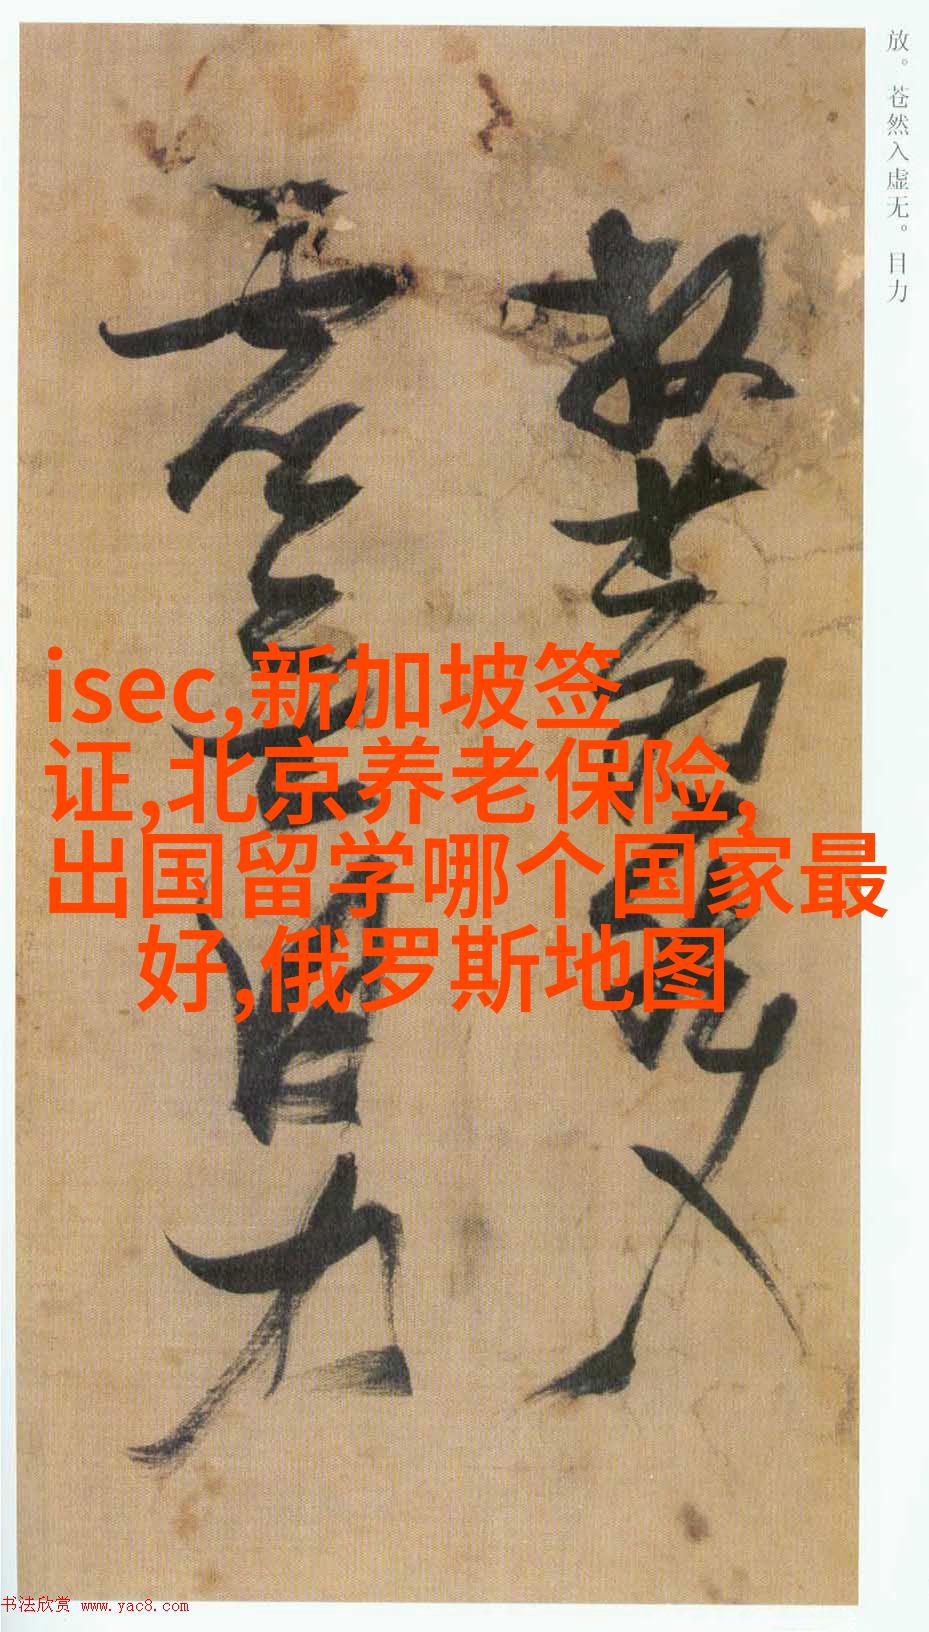 放。苍然入虚无。目力
放蒼然入
虛無目力
isec,新加坡签
证,北京养老保险,
出国留学哪个国家最
好,俄罗斯地图
书法欣赏 www.yac8.com